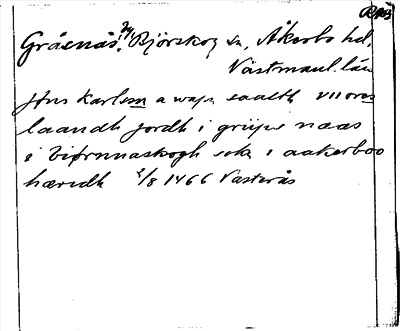 Gråenäs. Björskog sn, Åkerbo hd,
Västmanl. län
Jöns Karlsson a wapn saalth VII ores
laandh jordh i griipe naas
i biørnnaskogh sokn i aakerboo
hæredh 2/8 1466 Västerås